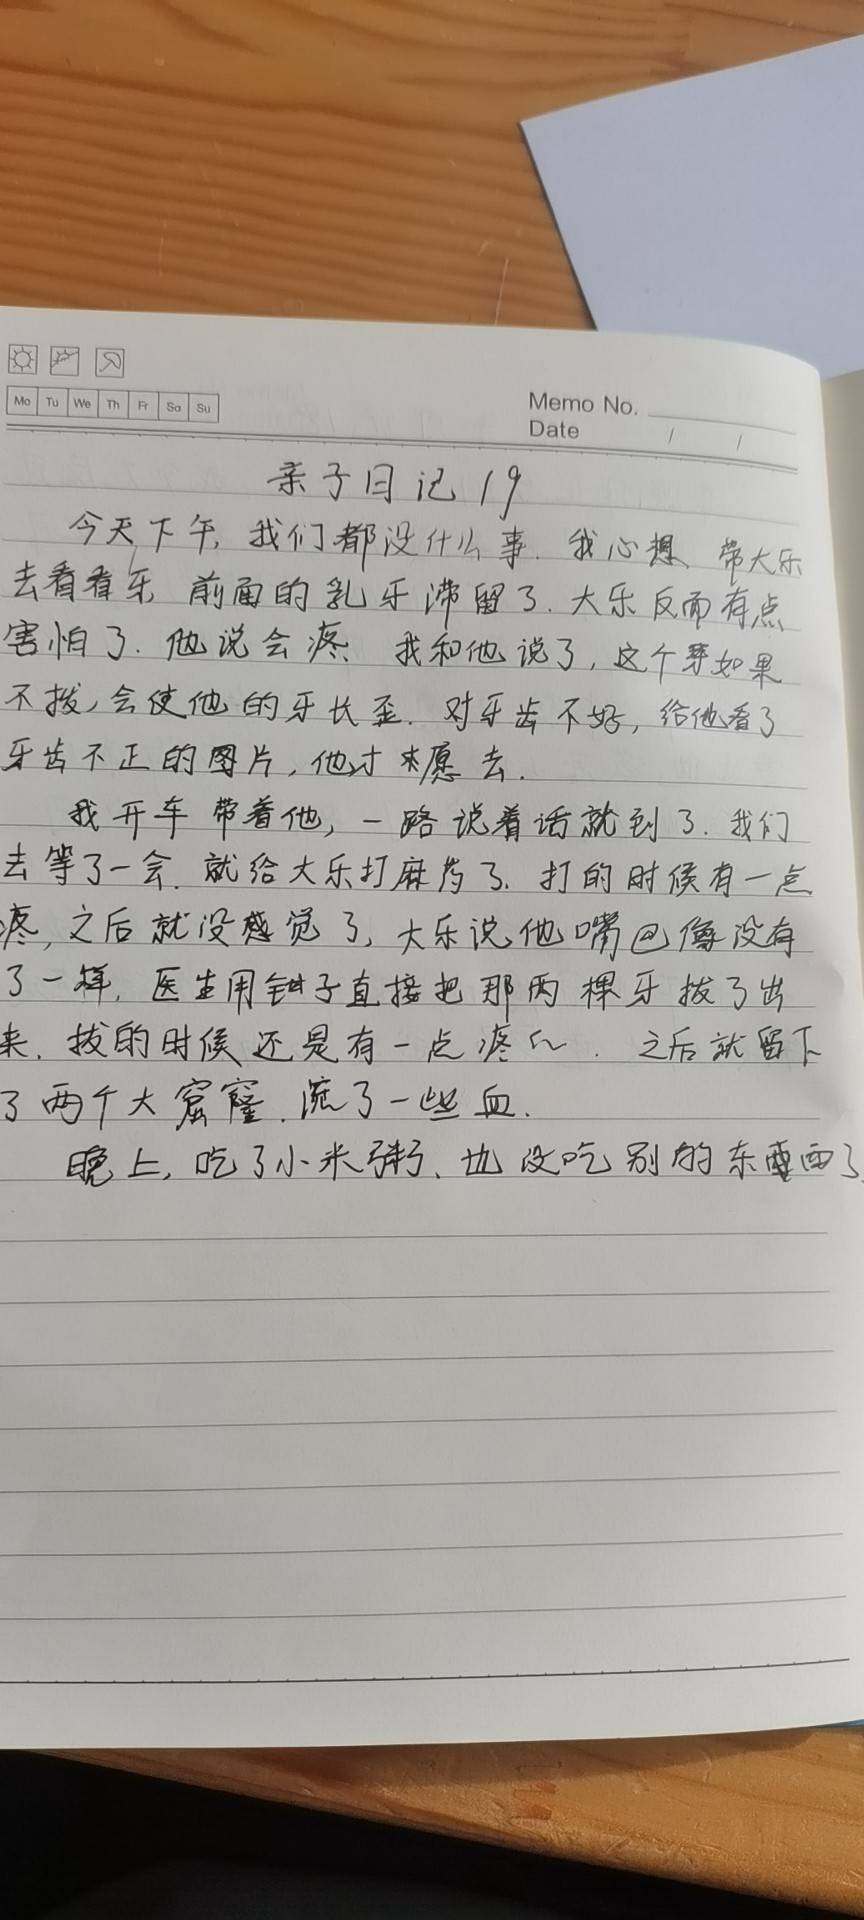 Mo Tu We Th Fr Sa Su
Memo No.
Date / /
亲子日记19
今天下午,我们都没什么事.我心想,带大乐
去看看牙,前面的乳牙滞留了.大乐反而有点
害怕了.他说会疼.我和他说了,这个牙如果
不拔,会使他的牙长歪.对牙齿不好,给他看了
牙齿不正的图片,他才愿去.
我开车带着他,一路说着话就到了.我们
去等了一会.就给大乐打麻药了.打的时候有一点
疼,之后就没感觉了,大乐说他嘴巴像没有
了一样,医生用钳子直接把那两棵牙拔了出
来.拔的时候还是有一点疼.之后就留下
了两个大窟窿.流了一些血.
晚上,吃了小米粥、也没吃别的东西了